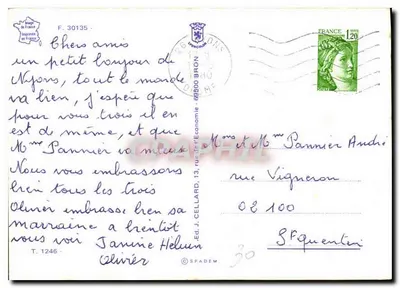 F. 30135
Chers amis
un petit bonjour de
Nyons, tout le monde
va bien, j'espère que
pour vous trois il en
est de même, et que
Mme Pannier va mieux
Nous vous embrassons
bien tous les trois
Olivier embrasse bien sa
marraine a bientôt
vous voir Janine Heluin
Olivier
T. 1246
Ed. J. CELLARD, 13, rue de l'Economie - 69500 BRON
© SPADEM
FRANCE
1,20
Mme et Mr Pannier André
rue Vigneron
02100
St Quentin
30